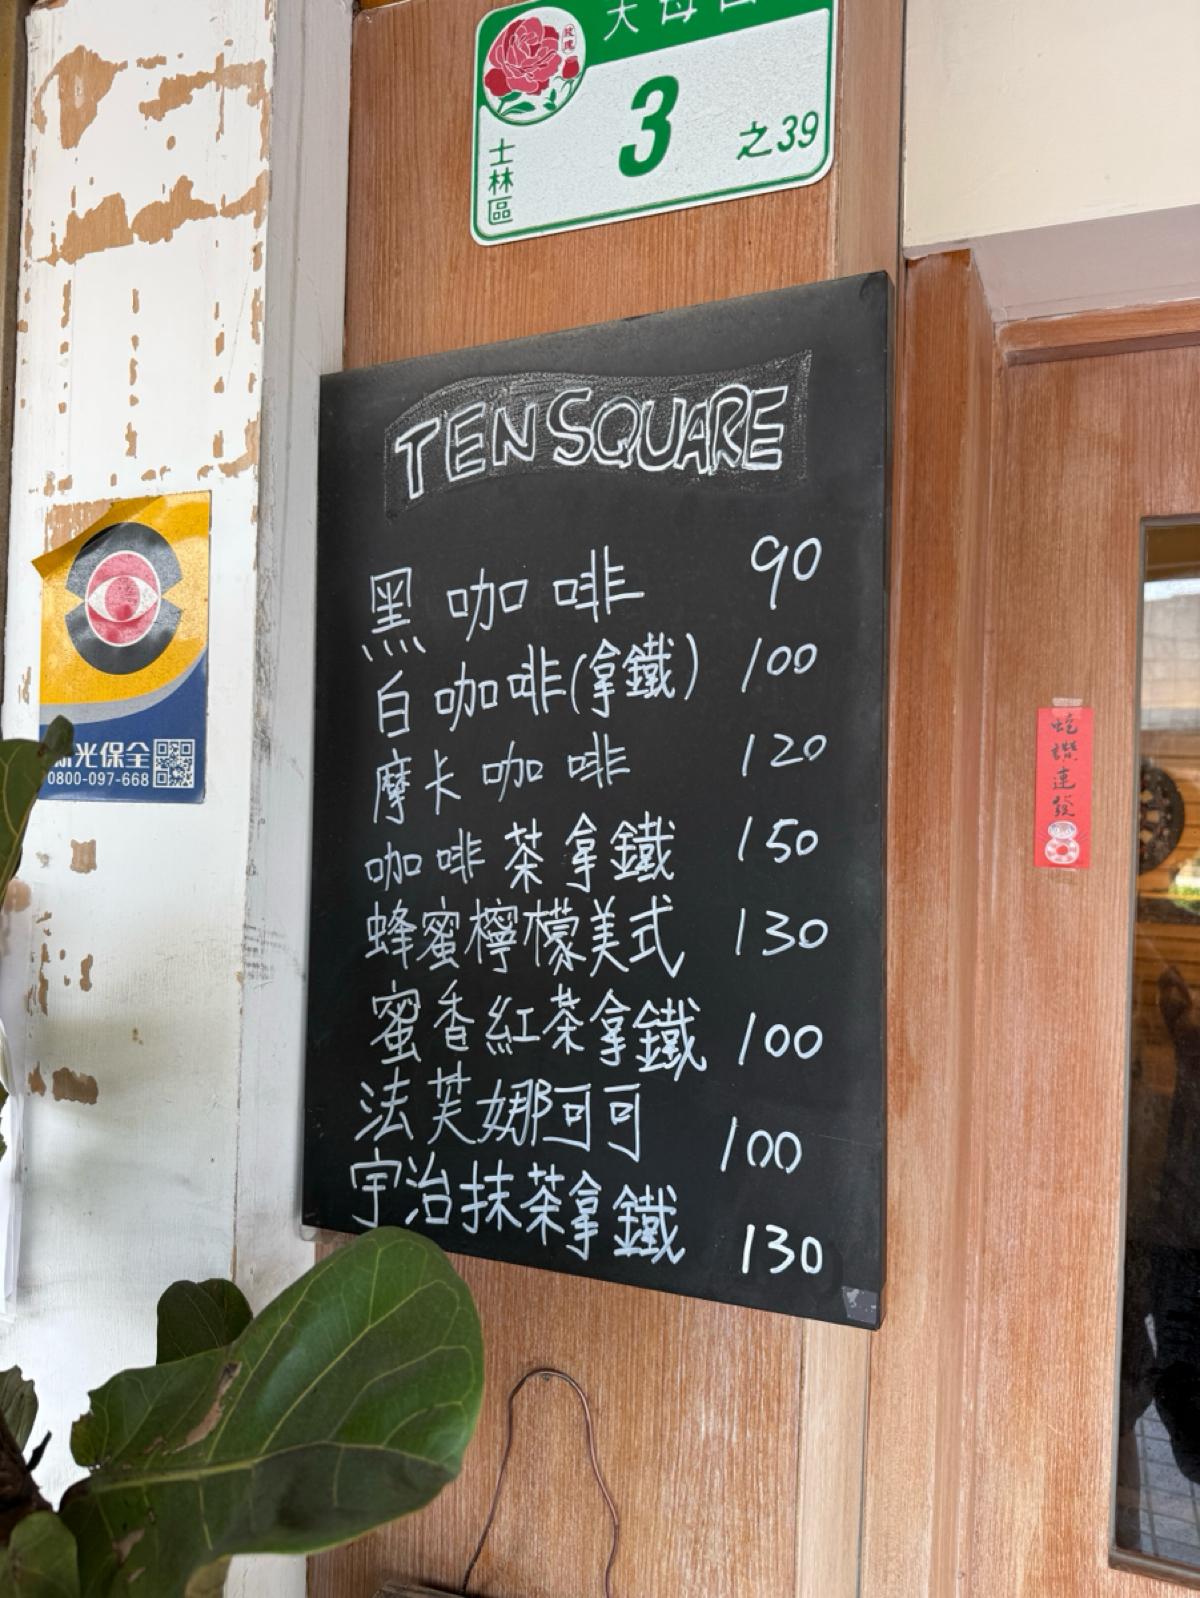 天母西
玫瑰
3 之39
士林區
TEN SQUARE
黑咖啡 90
白咖啡(拿鐵) 100
摩卡咖啡 120
咖啡茶拿鐵 150
蜂蜜檸檬美式 130
蜜香紅茶拿鐵 100
法芙娜可可 100
宇治抹茶拿鐵 130
光保全
0800-097-668
蛇讚連發